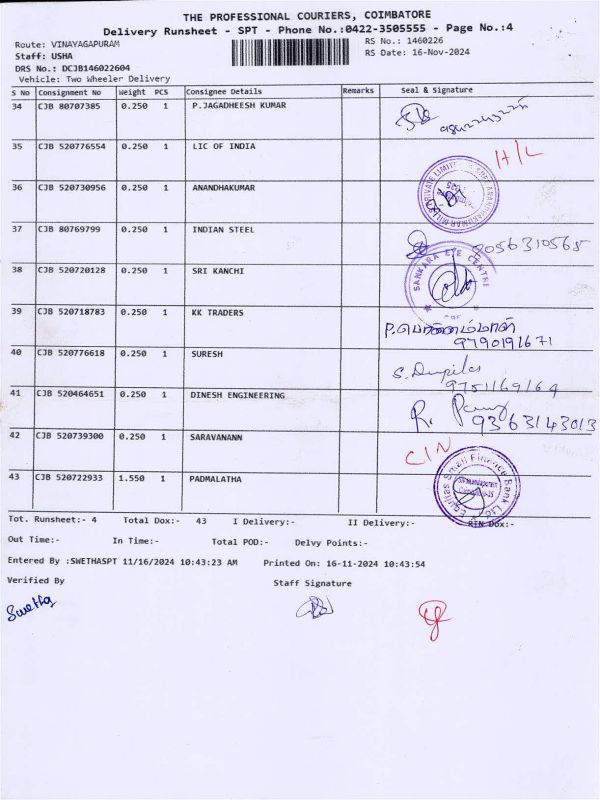 THE PROFESSIONAL COURIERS, COIMBATORE
Delivery Runsheet - SPT - Phone No.:0422-3505555 - Page No.:4
Route: VINAYAGAPURAM
RS No.: 1460226
Staff: USHA
RS Date: 16-Nov-2024
DRS No.: DCJB146022604
Vehicle: Two Wheeler Delivery
S No Consignment No Weight PCS Consignee Details Remarks Seal & Signature
34 CJB 80707385 0.250 1 P.JAGADHEESH KUMAR
35 CJB 520776554 0.250 1 LIC OF INDIA H/L
36 CJB 520730956 0.250 1 ANANDHAKUMAR
37 CJB 80769799 0.250 1 INDIAN STEEL 9056310565
38 CJB 520720128 0.250 1 SRI KANCHI SANKARA EYE CENTRE
39 CJB 520718783 0.250 1 KK TRADERS P.பொன்னம்மாள்
9790191671
40 CJB 520776618 0.250 1 SURESH
9751169164
41 CJB 520464651 0.250 1 DINESH ENGINEERING R.
9363143013
42 CJB 520739300 0.250 1 SARAVANANN C/N
43 CJB 520722933 1.550 1 PADMALATHA Equitas Small Finance Bank Ltd
Tot. Runsheet:- 4 Total Dox:- 43 I Delivery:- II Delivery:- RTN Dox:-
Out Time:- In Time:- Total POD:- Delvy Points:-
Entered By :SWETHASPT 11/16/2024 10:43:23 AM Printed On: 16-11-2024 10:43:54
Verified By Staff Signature
Swetha